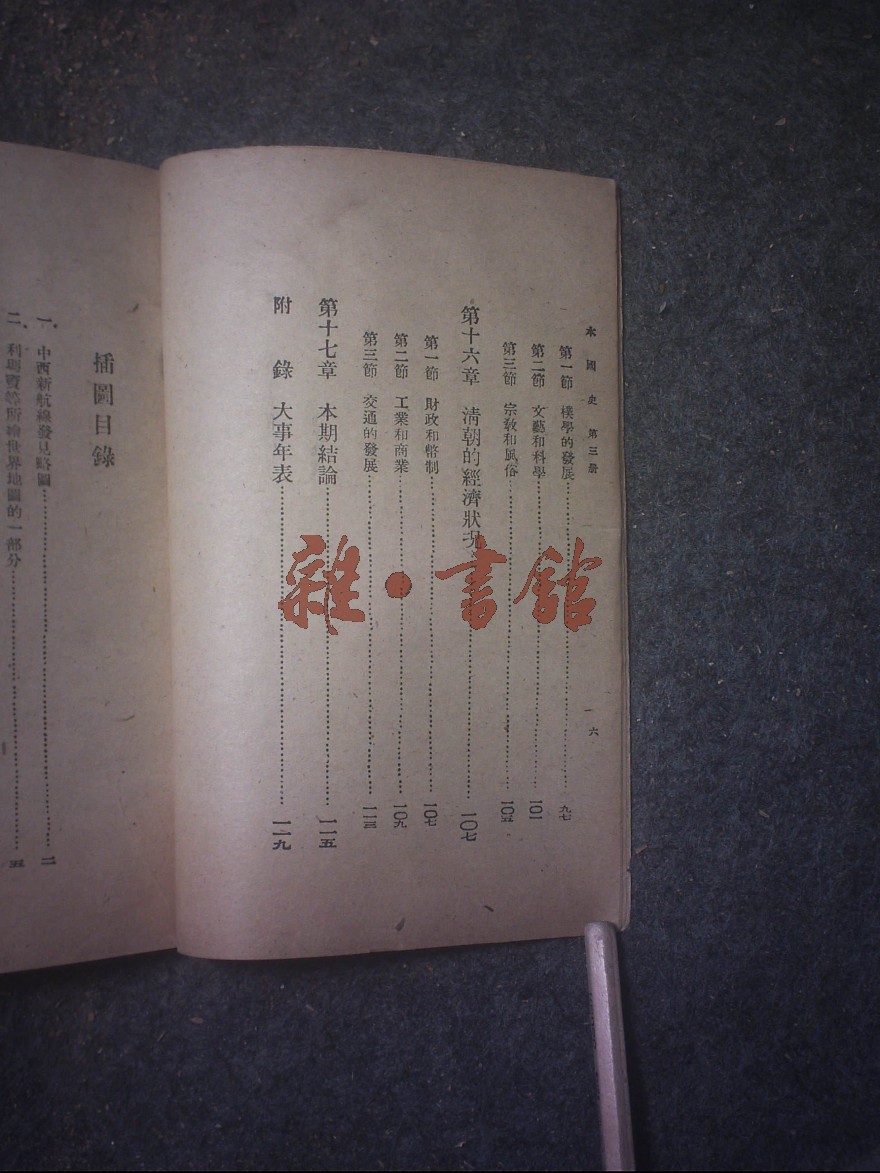 本國史 第三册 一六
第一節 樸學的發展……九七
第二節 文藝和科學……一〇一
第三節 宗敎和風俗……一〇五
第十六章 淸朝的經濟狀况……一〇七
第一節 財政和幣制……一〇七
第二節 工業和商業……一〇九
第三節 交通的發展……一一三
第十七章 本期結論……一一五
附錄 大事年表……一一九
插圖目錄
一. 中西新航線發見略圖……二
二. 利瑪竇等所繪世界地圖的一部分……五
雜·書館